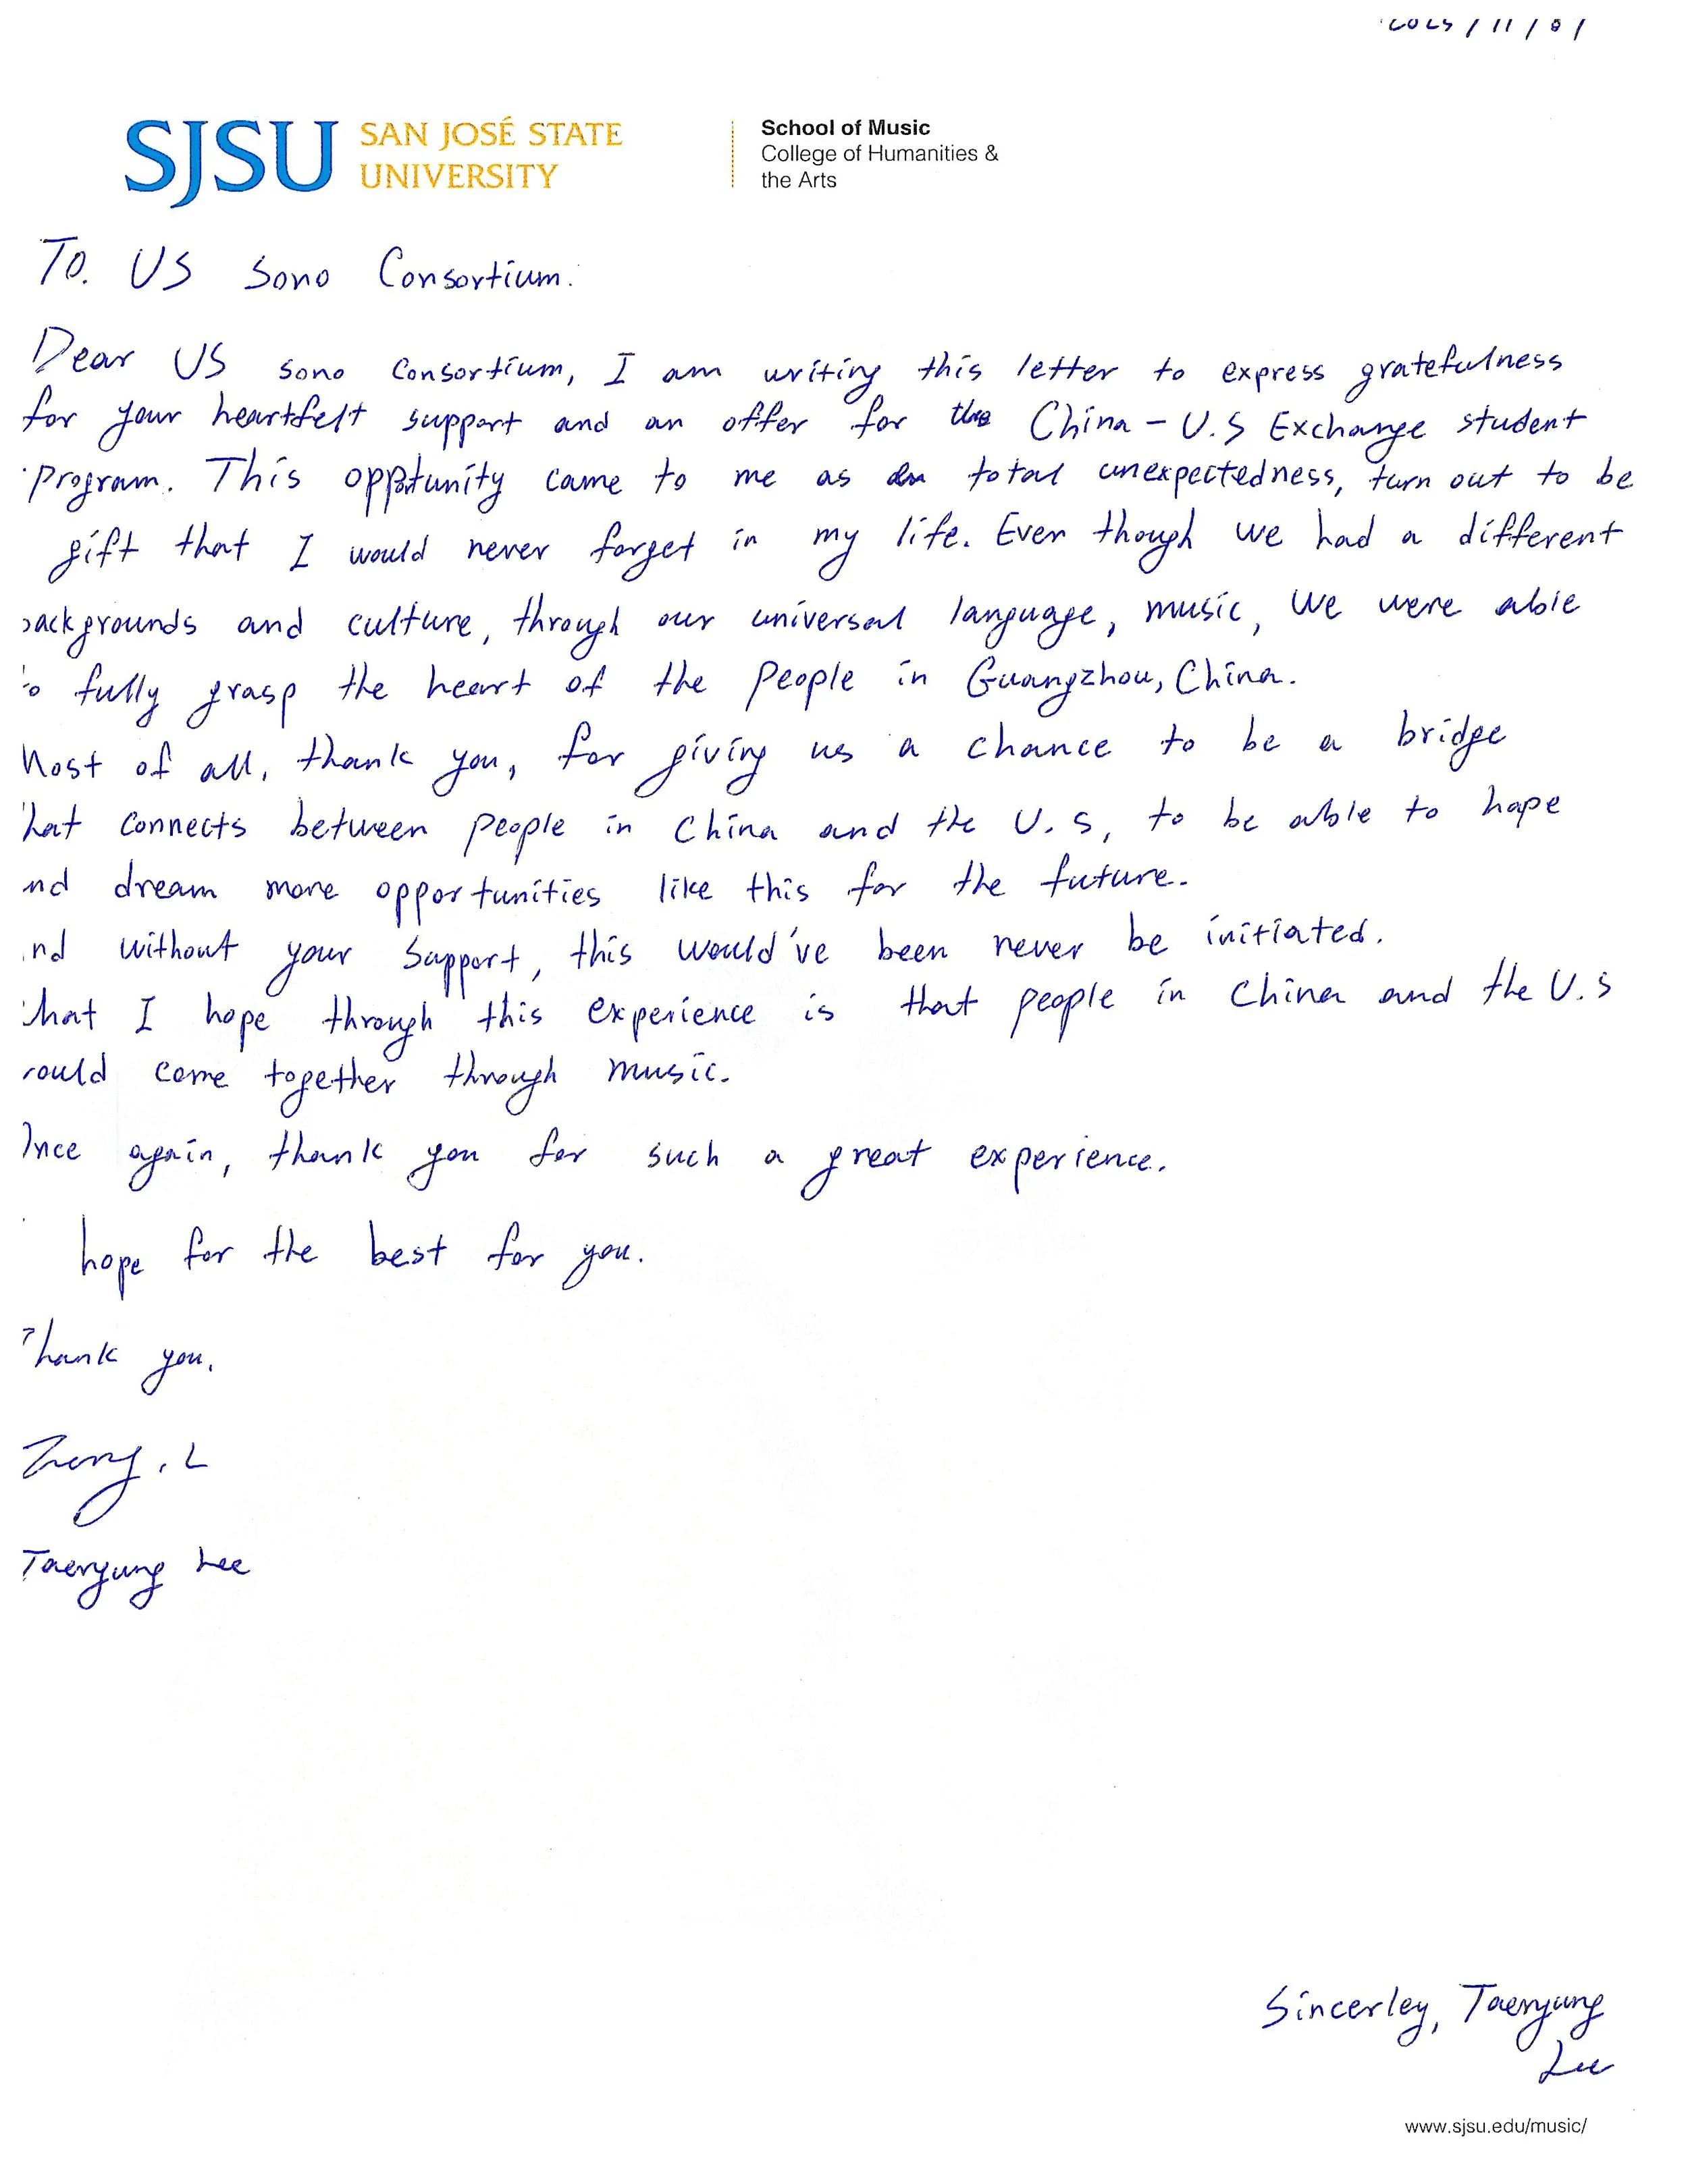 / 11 /
SJSU SAN JOSÉ STATE UNIVERSITY
School of Music
College of Humanities &
the Arts
To. US Sono Consortium.
Dear US sono Consortium, I am writing this letter to express gratefulness
for your heartfelt support and an offer for the China - U.S Exchange student
program. This opportunity came to me as total unexpectedness, turn out to be
gift that I would never forget in my life. Even though we had a different
backgrounds and culture, through our universal language, music, we were able
to fully grasp the heart of the people in Guangzhou, China.
Most of all, thank you, for giving us a chance to be a bridge
hat connects between people in China and the U.S, to be able to hope
nd dream more opportunities like this for the future.
nd without your support, this would've been never be initiated.
hat I hope through this experience is that people in China and the U.S
ould come together through music.
nce again, thank you for such a great experience.
hope for the best for you.
Thank you.
Taeryung Lee
Sincerley, Taeryung
Lee
www.sjsu.edu/music/